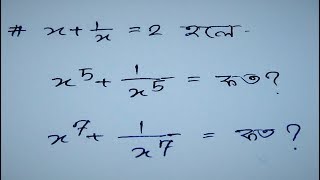 # x + 1/x = 2 হলে -
x⁵ + 1/x⁵ = কত?
x⁷ + 1/x⁷ = কত?